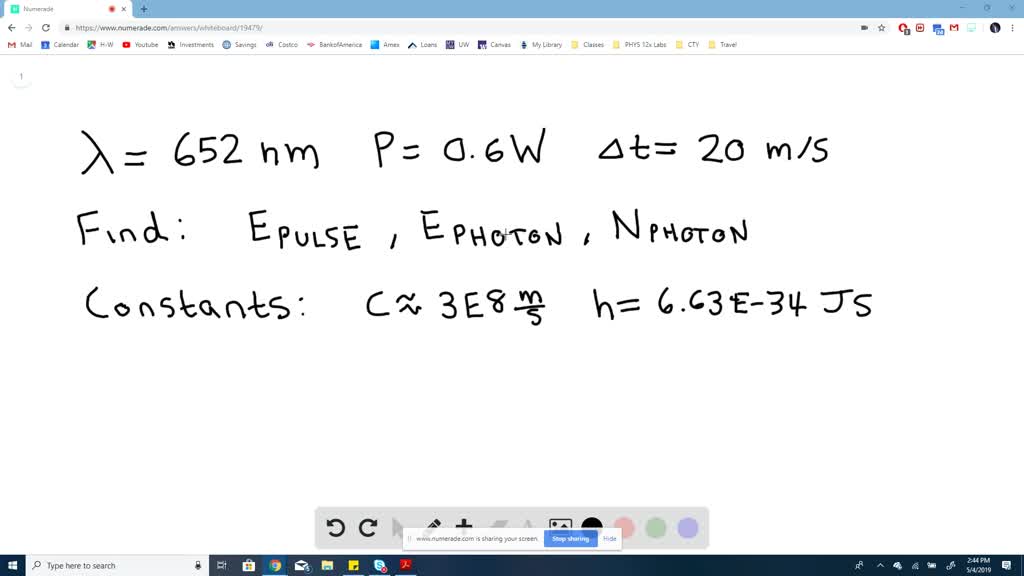 Numerade
https://www.numerade.com/answers/whiteboard/19479/
Mail Calendar H-W Youtube Investments Savings Costco BankofAmerica Amex Loans UW Canvas My Library Classes PHYS 12x Labs CTY Travel
1
λ = 652 nm P = 0.6W Δt = 20 m/s
Find: E PULSE , E PHOTON , N PHOTON
Constants: C ≈ 3E8 m/s h = 6.63E-34 JS
www.numerade.com is sharing your screen. Stop sharing Hide
Type here to search
2:44 PM
5/4/2019